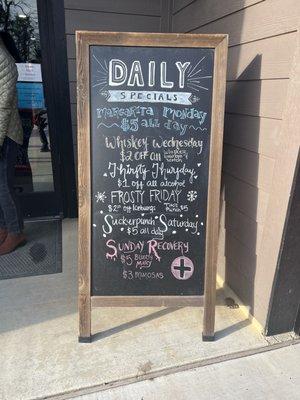 DAILY
SPECIALS
Margarita Monday
$5 all day
Whiskey Wednesday
$2 off All
Thirsty Thursday
$1 off all alcohol
FROSTY FRIDAY
$2 off Icebergs
$5
Suckerpunch Saturday
$5 all day
SUNDAY RECOVERY
$5 Bloody Mary
$3 MIMOSAS